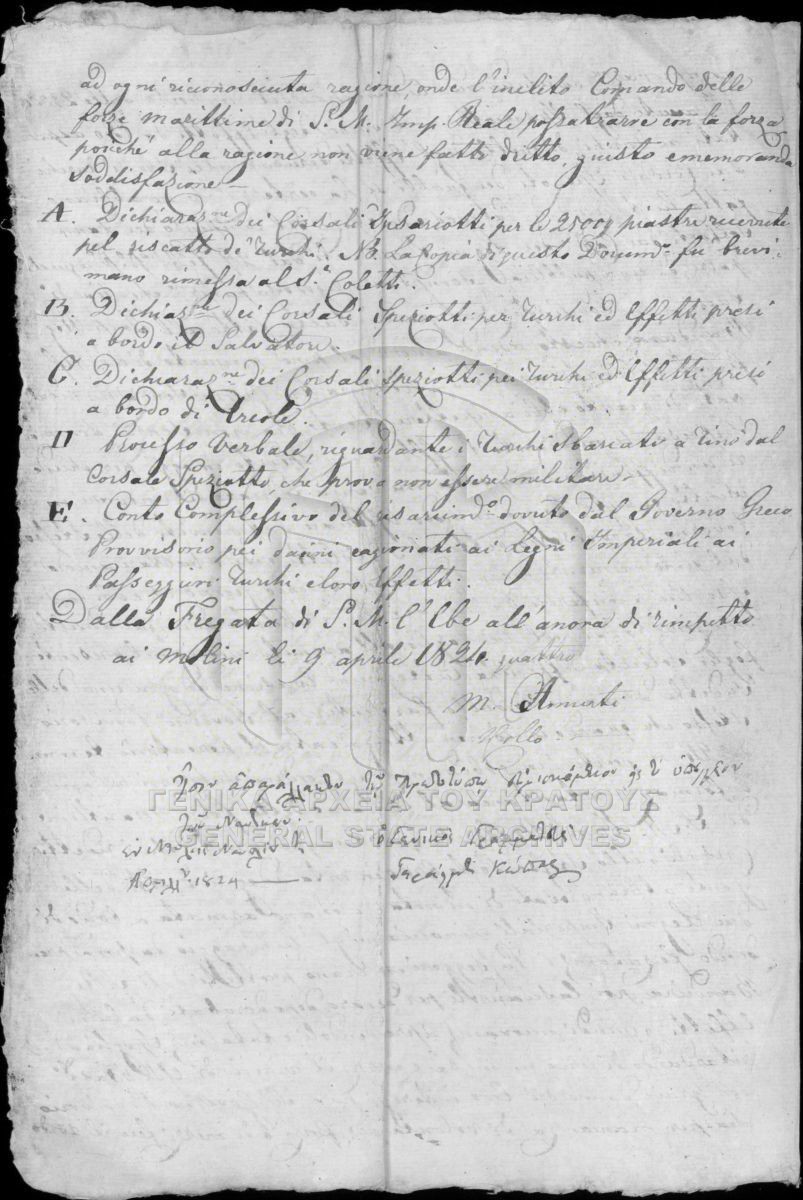 ad ogni riconosciuta ragione, onde l'inclito Comando delle
forze marittime di S. M. Imp. Reale possa trarne con la forza
poiche alla ragione non viene fatto dritto, giusta e memoranda
soddisfazione
A. Dichiaraz.ne dei Corsali Ipsariotti per le piastre ricevute
pel riscatto de' Turchi. NB. La Copia di questo Docum.o fu brevi
mano rimessa al S.r Coletti.
B. Dichiaz.ne dei Corsali Speziotti per Turchi ed Effetti presi
a bordo il Salvatore.
C. Dichiaraz.ne dei Corsali Speziotti pei Turchi ed Effetti presi
a bordo di
D Processo Verbale, riguardante i Turchi sbarcati a Tino dal
Corsale Speziotto, che prova non essere militare
E. Conto Complessivo del risarcim.o dovuto dal Governo Greco
Provvisorio pei danni cagionati ai Legni Imperiali ai
Passeggieri Turchi e loro Effetti.
Dalla Fregata di S. M. l'Ebe all'ancora di rimpetto
ai Molini li 9 aprile 1824. quattro
M.
ἴσον ἀπαράλλακτον τῷ πρωτοτύπῳ
ΓΕΝΙΚΑ ΑΡΧΕΙΑ ΤΟΥ ΚΡΑΤΟΥΣ
GENERAL STATE ARCHIVES
ὁ Γενικὸς Γραμματεὺς
1824